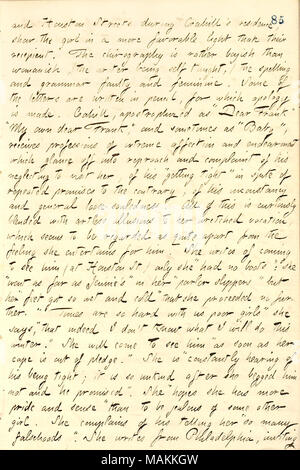 85
and Houston Streets during Cahill's residence
show the girl in a more favorable light than their
recipient. The chirography is rather boyish than
womanish, (the writer being self taught,) the spelling
and grammar faulty and feminine. Some of
the letters are written in pencil, for which apology
is made. Cahill, apostrophized as "Dear Frank"
"My own dear Frank," and sometimes as "Baby",
receives professions of intense affection and endearment
which glance off into reproach and complaint of his
neglecting to meet her, of his "getting tight" in spite of
repeated promises to the contrary, of his inconstancy
and general . All of this is curiously
blended with artless allusions to her wretched vocation
which seems to be regarded as quite apart from the
feeling she entertains for him. She writes of coming
to see him (at Houston St) only she had no boots; she
"went as far as Jennie's in her parlor slippers" but
her feet got so wet and cold that she proceeded no fur-
ther. "Times are so hard with us poor girls" she
says, "that indeed I don't know what I will do this
winter." She will come to see him as soon as her
cape is out of pledge." She is constantly hearing of
his being tight; it is so unkind after she begged him
not and he promised. She hopes she has more
pride and sense than to be jealous of some other
girl. She complains of his telling her so many
falsehoods. She writes from Philadelphia, inviting
alamy
Image ID: MAKKGW
www.alamy.com